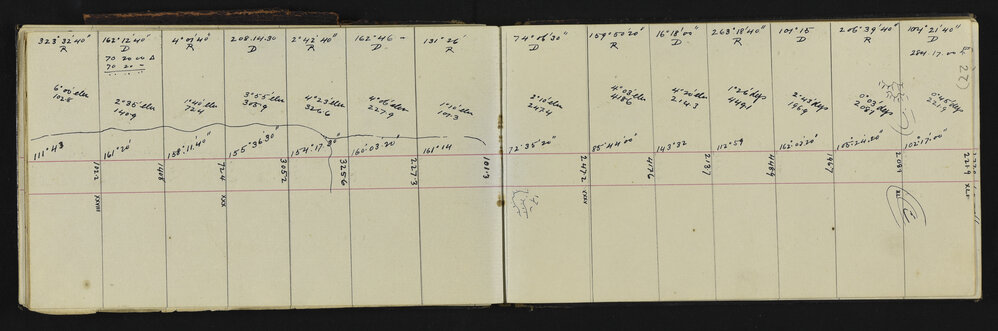 323°32'40"
R
6°00'elev
1025
111°43
162°12'40"
D
70 20 00 Δ
70 20 -
2°35'elev
1409
161°20'
1408
XXVIII
4°01'40"
R
1°40'elev
724
158°11'40"
724
208.14.30
D
3°55'elev
305·9
155°36'30"
305·2
XXX
2°42'40"
R
4°23'elev
326·6
154°17'30"
325·6
162°46 -
D
4°06'elev
227·9
160°03·20"
227·3
131°26'
R
1°10'elev
101·3
161°14
101·3
74°06'30"
D
2°10'elev
247·4
72°35'20"
247·2
XXXV
159°50'20"
R
4°03'elev
418·6
85°44'00"
417·6
16°18'00"
D
4°20'elev
214·3
143°32
213·7
263°18'40"
R
1°26'dep
449·1
112°59
448·9
101°15
D
2°43'dep
196·9
162°02'20"
196·7
206°39'40"
R
0°03'dep
208·9
105·24·30"
208·9
XL
104°21'40"
D
2801.17.00
0°45'dep
221·9
102°17'00"
221·9
XLI